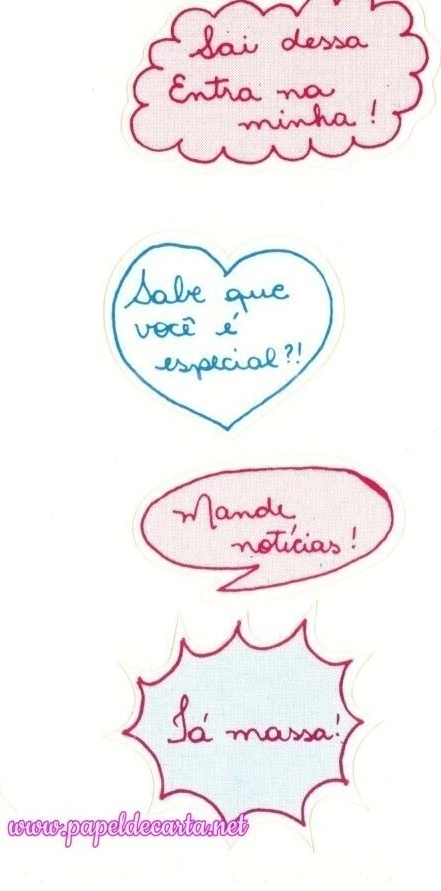 Sai dessa
Entra na
minha!
Sabe que
você é
especial?!
Mande
notícias!
Tá massa!
www.papeldecarta.net